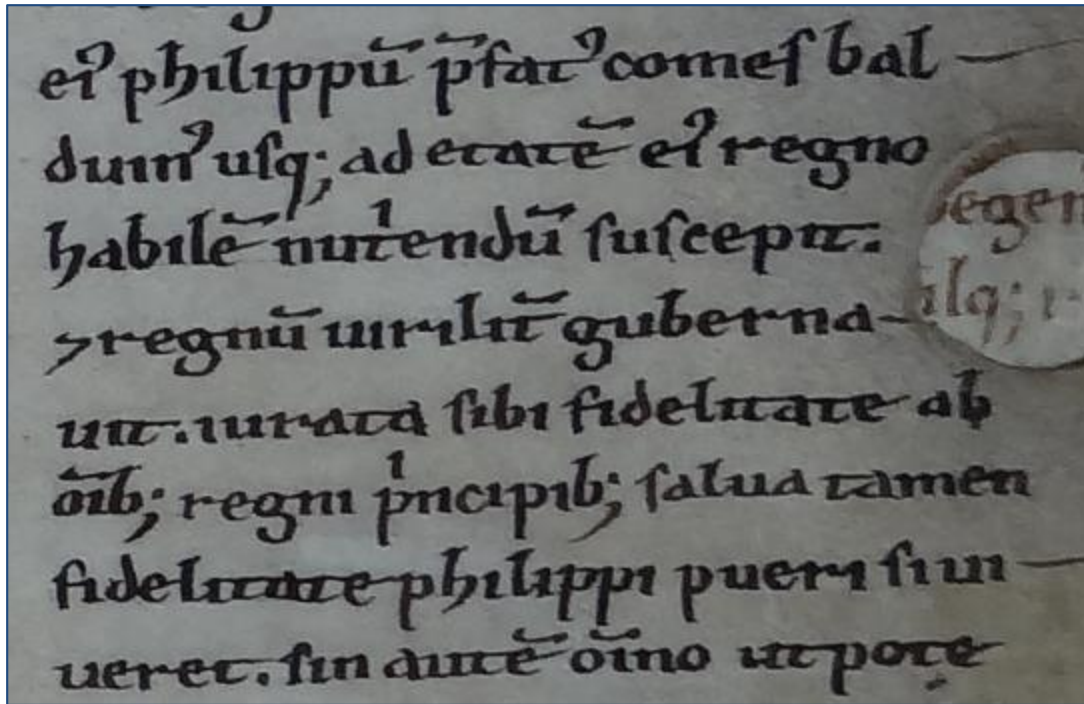 eiꝰ philippū p̄fatꝰ comeſ bal-
duinꝰ uſq; ad etatē eiꝰ regno
habilē nutͥendū ſuſcepit.
⁊ regnū uirilit̄ guberna-
uit. iurata ſibi fidelitate ab
oīb; regni pͥncipib; ſalua tamen
fidelitate philippi pueri ſi ui-
ueret. ſin autē oīno ut pote